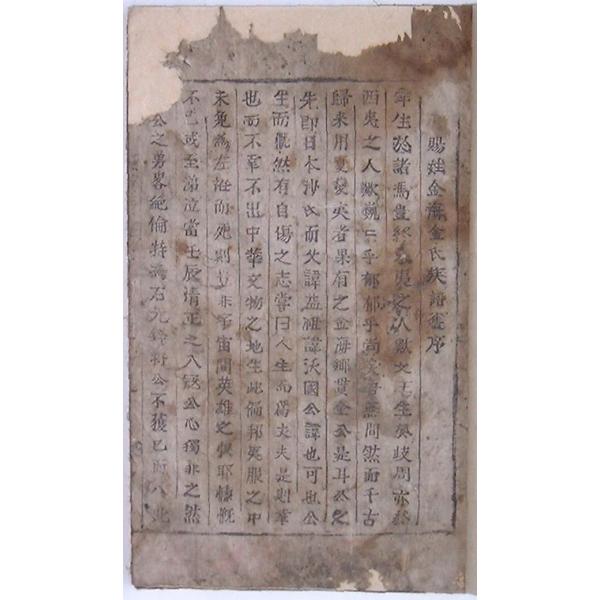 賜姓金海金氏族譜舊序
生於諸馮豊終 夷之人歟文王生於岐周亦
西夷之人歟巍巍乎郁郁乎尚矣 無間然而千古
歸來用夏變夷者果有之金海鄕貫金公是耳公之
先即日本沙氏而父諱益祖諱沃國公諱也可也公
生而慨然有自傷之志嘗曰人生而爲丈夫是則幸
也而不幸不出中華文物之地生此偏邦夷服之中
未免爲左衽而死則豈非宇宙間英雄之恨耶慷慨
不已或至涕泣當壬辰淸正之入寇公心獨非之然
公之勇畧絶倫特 右先鋒將公不獲已而八 此